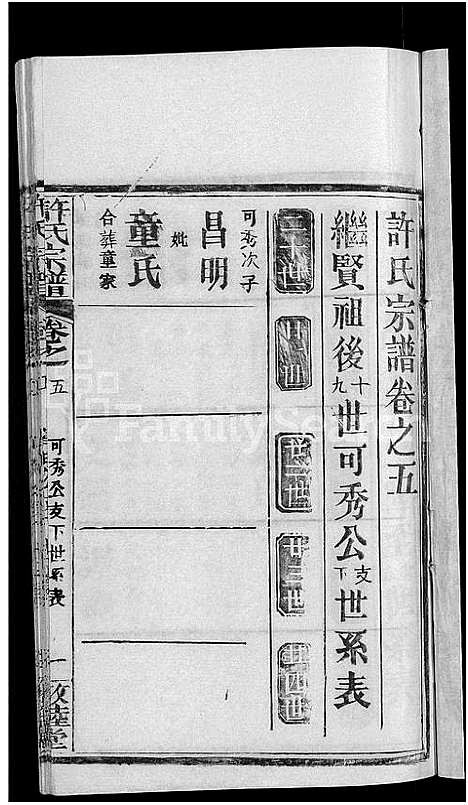 許氏宗譜卷之五
繼賢祖後十九世可秀公支下世系表
二十世
廿一世
廿二世
廿三世
廿四世
可秀次子
昌明
妣
童氏
合葬童家
許氏宗譜
卷之五
可秀公支下世系表
一
敦睦堂
FamilySearch